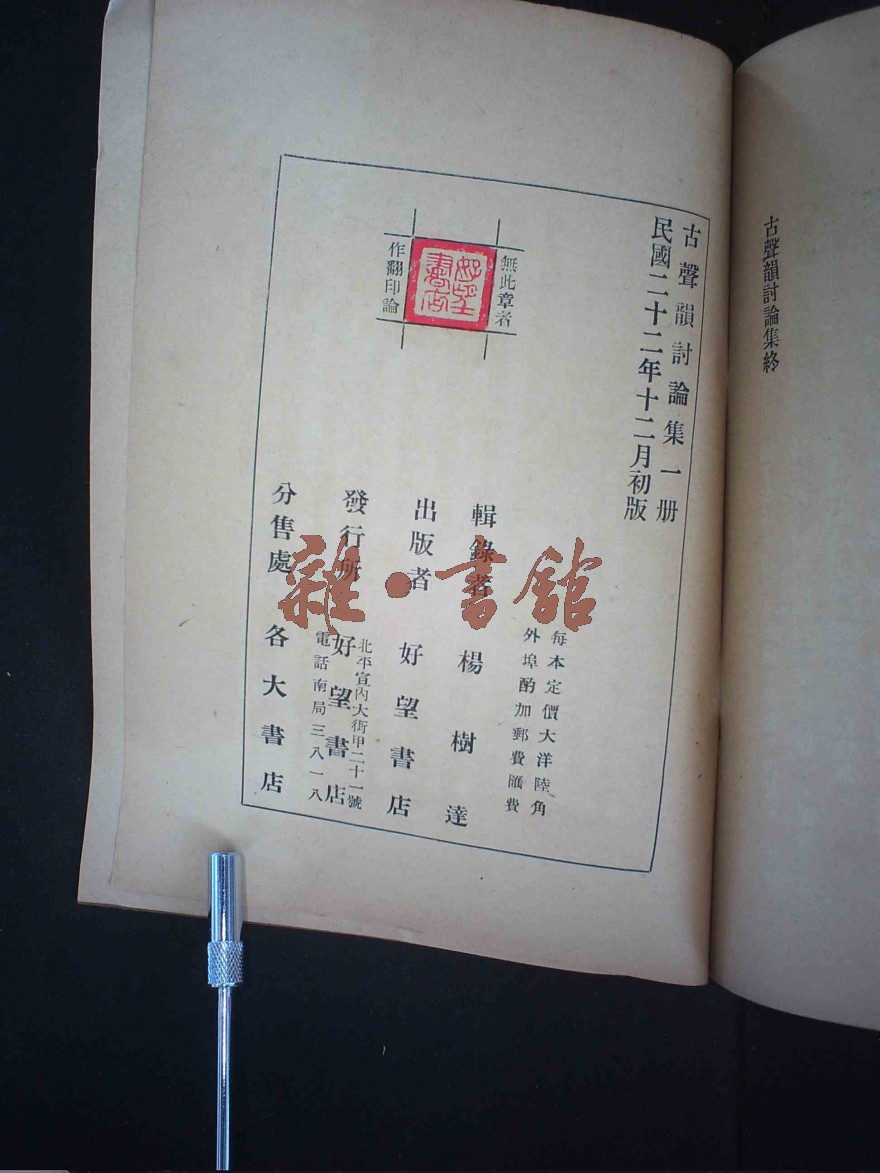 古聲韻討論集終
古聲韻討論集一册
民國二十二年十二月初版
無此章者
好望書店
作翻印論
每本定價大洋陸角
外埠酌加郵費匯費
輯錄者 楊樹達
出版者 好望書店
發行所 好望書店
北平宣內大街甲二十一號
電話南局三八一八
分售處 各大書店
雜·書館